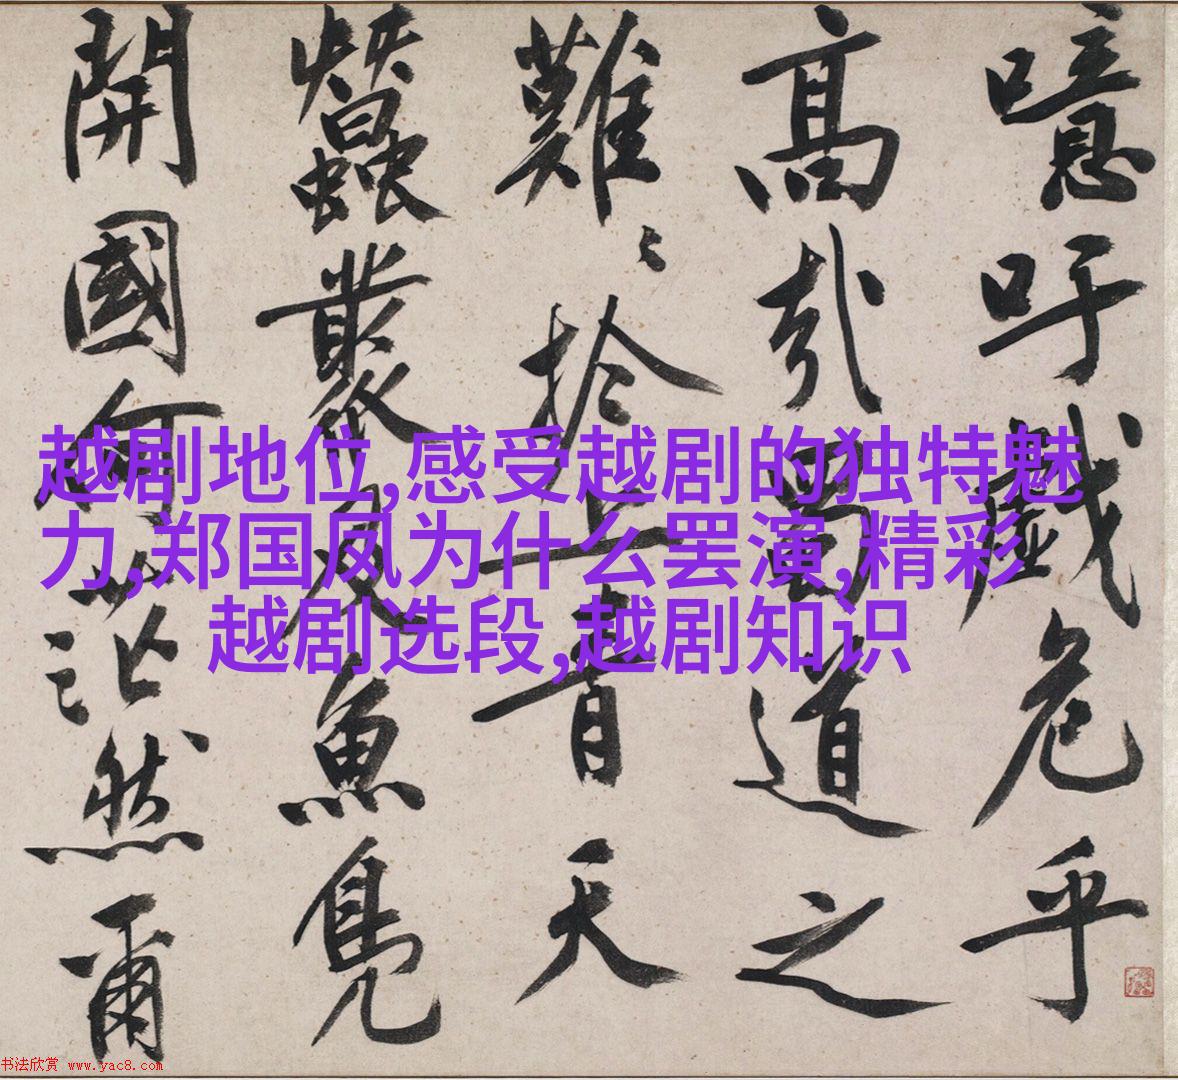 噫吁戲危乎
高哉蜀道之
難〻於上青天
蠶叢及魚鳧
開國何茫然爾
越剧地位,感受越剧的独特魅
力,郑国凤为什么罢演,精彩
越剧选段,越剧知识
书法欣赏 www.yac8.com